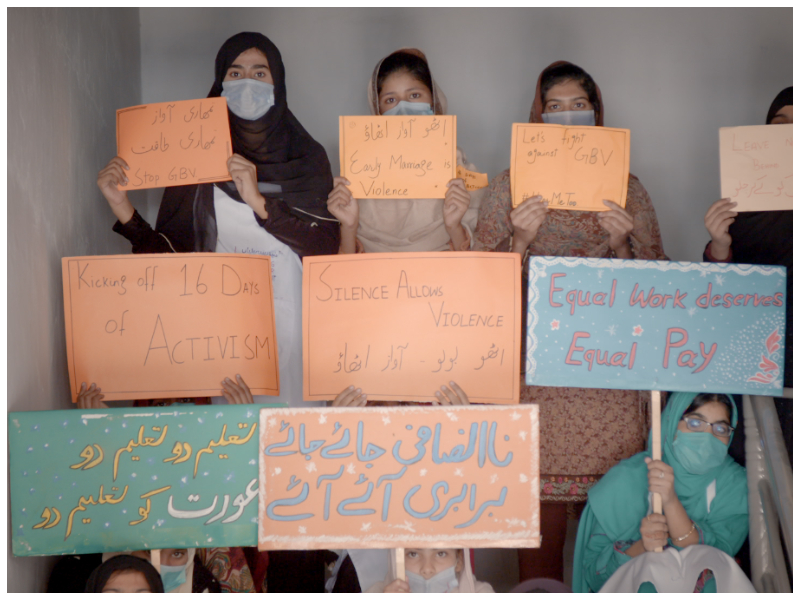 تمھاری آواز
تمھاری طاقت
Stop GBV
اٹھو آواز اٹھاؤ
Early Marriage is
Violence
Let's fight
against GBV
Me Too
Kicking off 16 Days
of Activism
Silence Allows
Violence
اٹھو بولو - آواز اٹھاؤ
Equal Work deserves
Equal Pay
تعلیم دو تعلیم دو
عورت کو تعلیم دو
ناانصافی جائے جائے
برابری آئے آئے